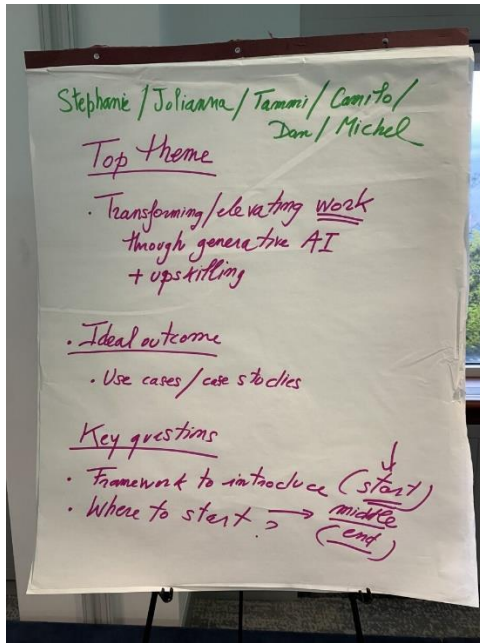 Stephanie / Julianna / Tammi / Camilo /
Dan / Michel
Top theme
· Transforming/elevating work
through generative AI
+ upskilling
· Ideal outcome
· Use cases / case studies
Key questions
· Framework to introduce (start)
· Where to start ? → middle
(end)